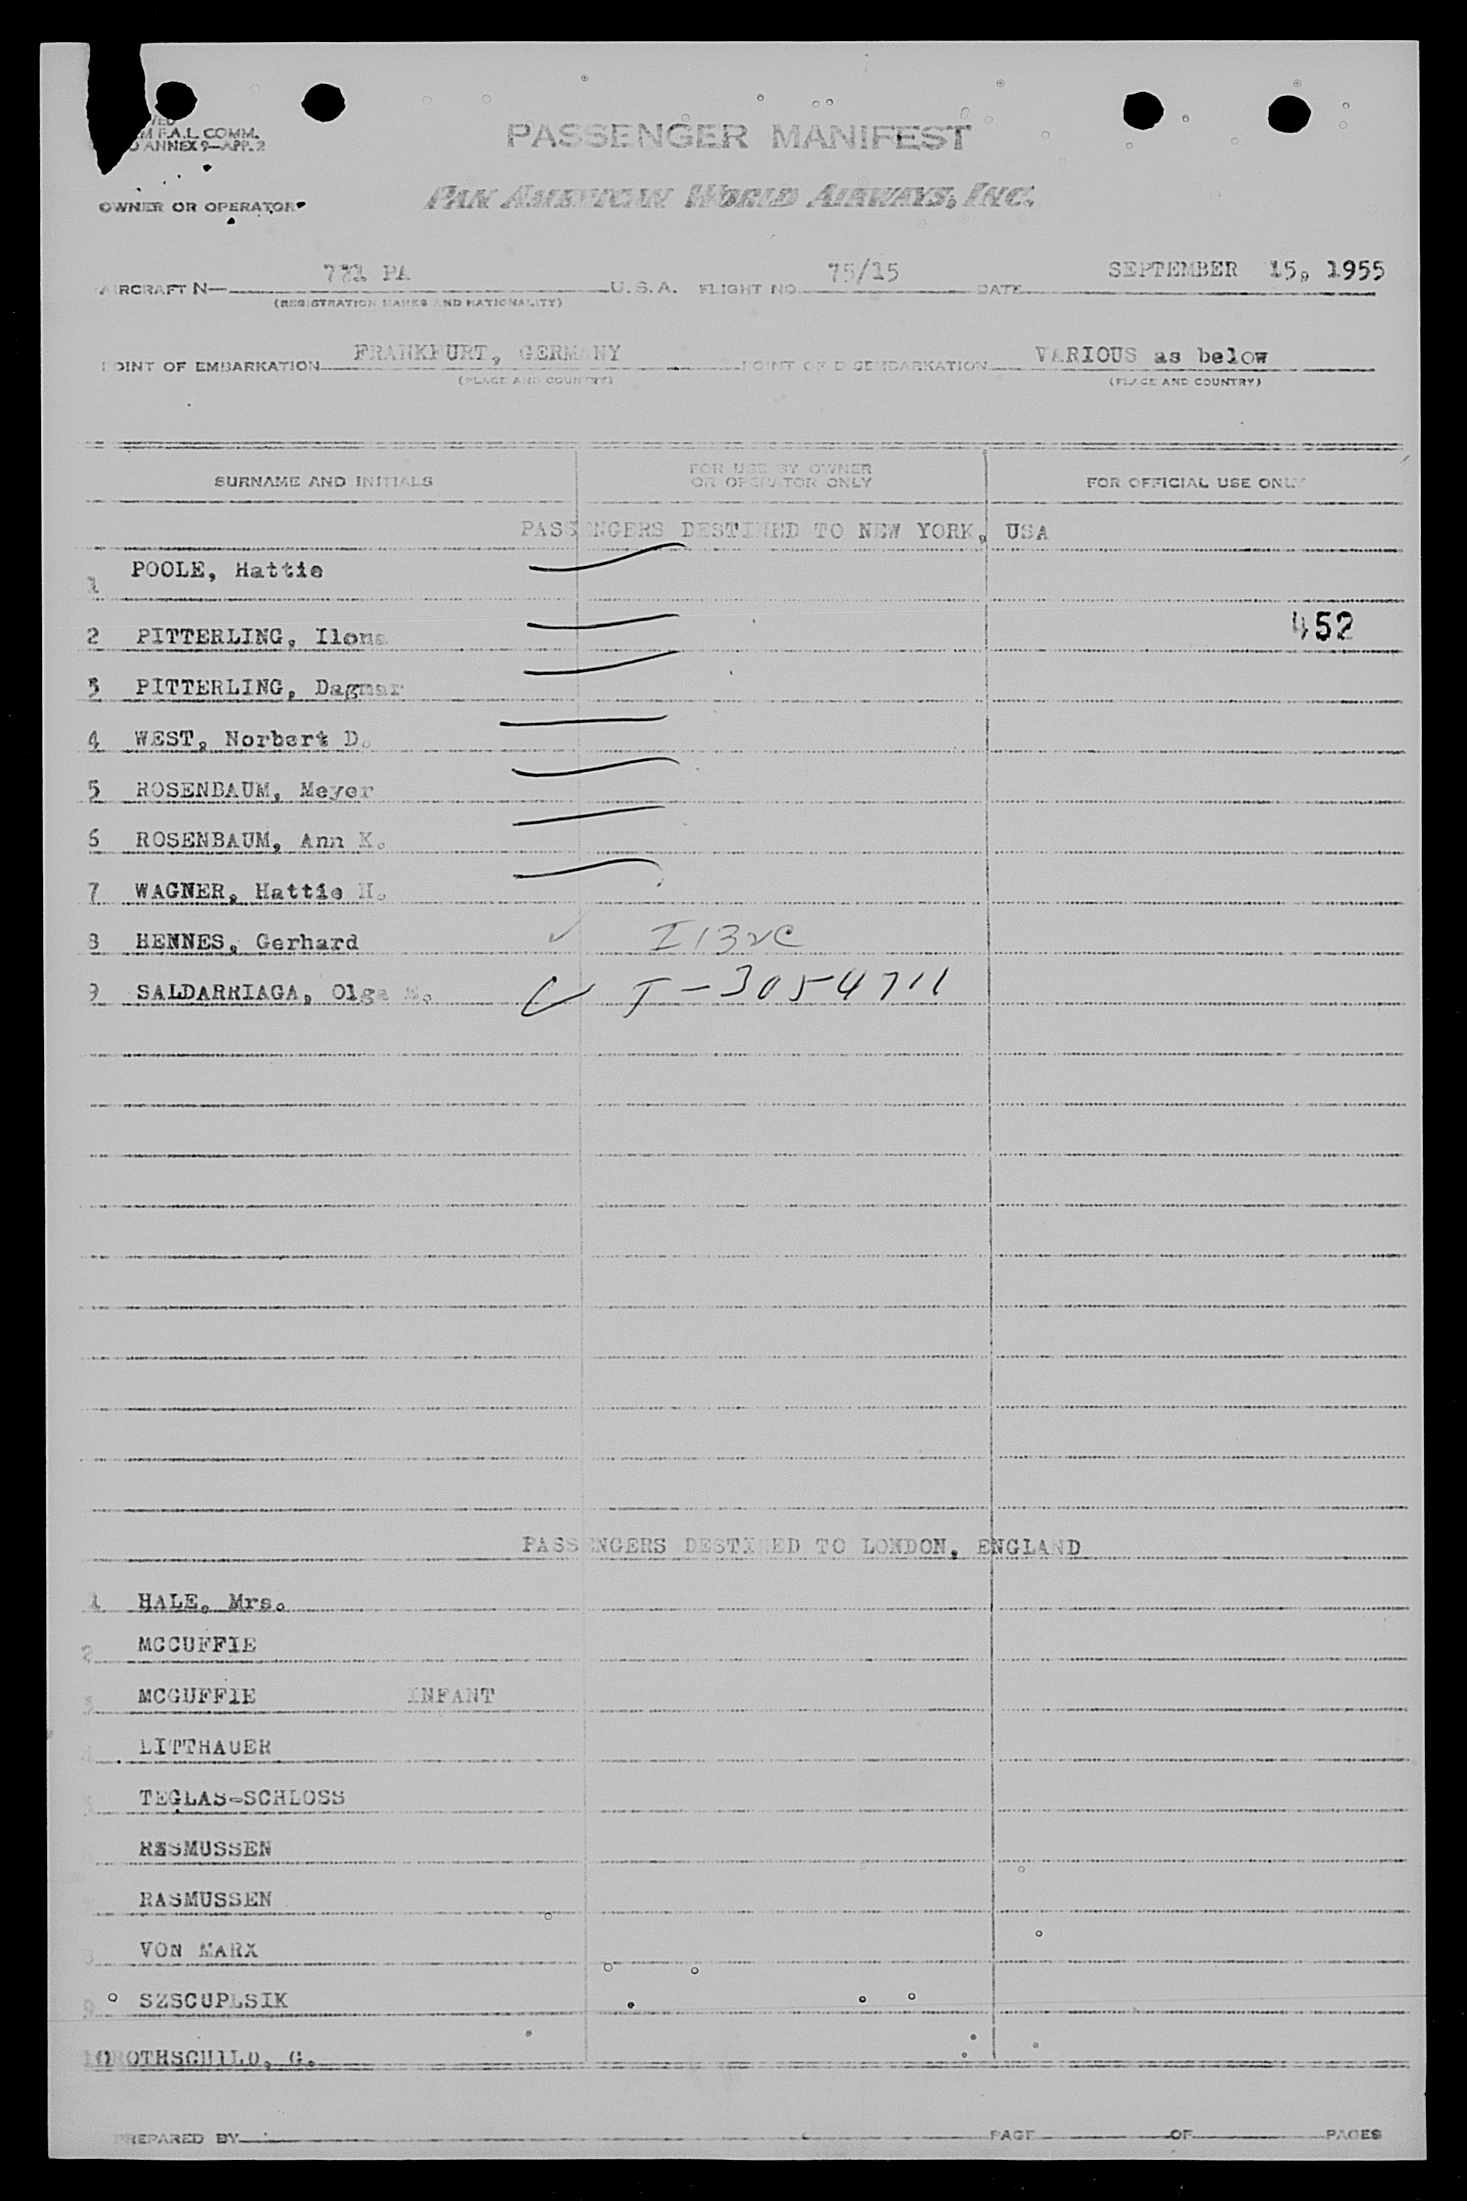 F.A.L. COMM.
ANNEX 9—APP. 2
PASSENGER MANIFEST
OWNER OR OPERATOR
PAN AMERICAN WORLD AIRWAYS, INC.
AIRCRAFT N— PA U.S.A. FLIGHT NO. 75/15 DATE SEPTEMBER 15, 1955
(REGISTRATION MARKS AND NATIONALITY)
POINT OF EMBARKATION FRANKFURT, GERMANY POINT OF DISEMBARKATION VARIOUS as below
(PLACE AND COUNTRY) (PLACE AND COUNTRY)
SURNAME AND INITIALS FOR USE BY OWNER OR OPERATOR ONLY FOR OFFICIAL USE ONLY
PASSENGERS DESTINED TO NEW YORK, USA
1 POOLE, Hattie
452
2 PITTERLING, Ilona
3 PITTERLING, Dagmar
4 WEST, Norbert D.
5 ROSENBAUM, Meyer
6 ROSENBAUM, Ann K.
7 WAGNER, Hattie H.
8 HENNES, Gerhard
9 SALDARRIAGA, Olga T-3054711
PASSENGERS DESTINED TO LONDON, ENGLAND
1 HALE, Mrs.
2 MCCUFFIE
3 MCGUFFIE INFANT
4 LITTHAUER
5 TEGLAS-SCHLOSS
RASMUSSEN
RASMUSSEN
8 VON MARX
9 SZSCUPLSIK
10 ROTHSCHILD, G.
PREPARED BY PAGE OF PAGES